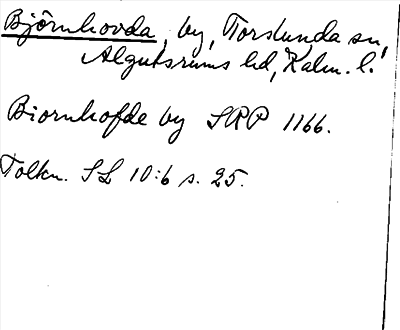 Björnhovda, by, Torslunda sn,
Algutsrums hd, Kalm. l.
Biornhofde by SRP 1166.
Tolkn. SL 10:6 s. 25.